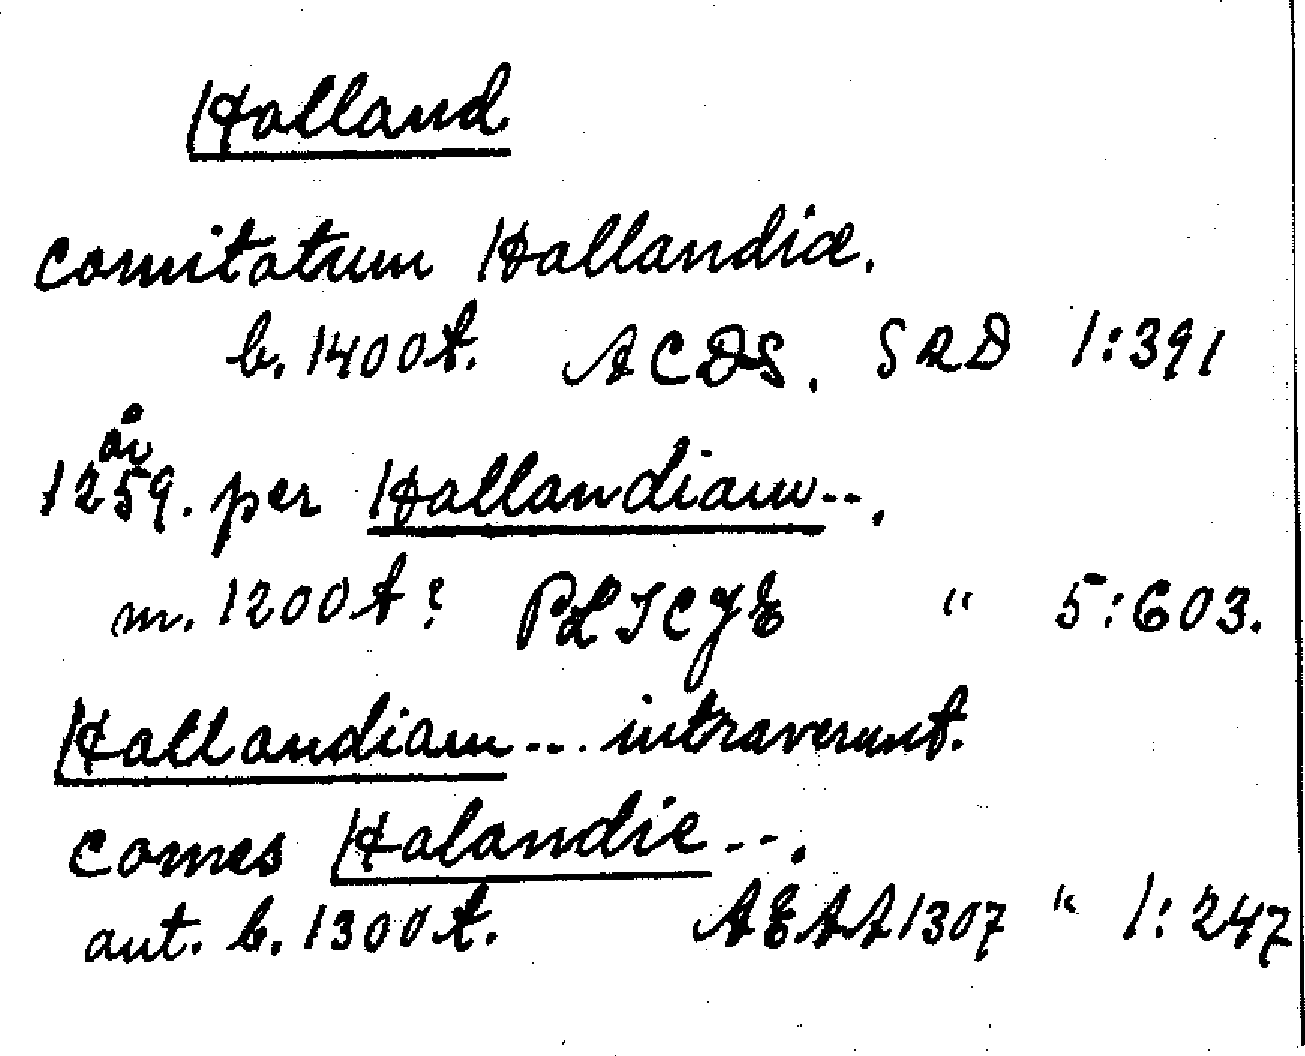 Holland
comitatum Hollandiæ.
b. 1400t. ACDS. SRD 1:391
år
1259. per Hallandiam--.
m. 1200t? PLICYE " 5:603.
Hallandiam--. intraverunt.
comes Halandie--.
aut. b. 1300t. AEAA1307 " 1:247